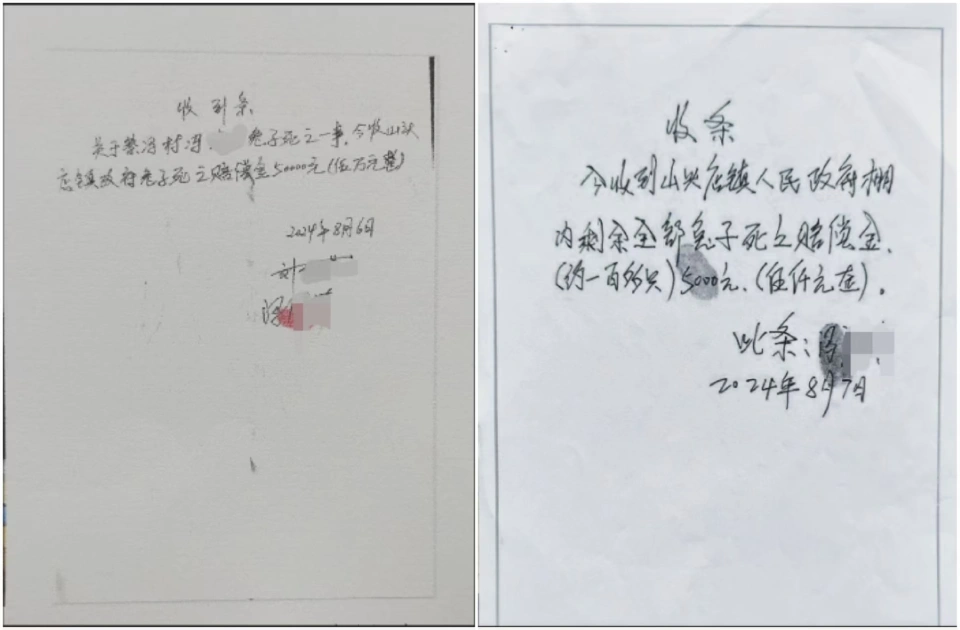 收到条
关于蔡冯村冯 兔子死之一事,今收山头
店镇政府兔子死之赔偿金50000元(伍万元整)
2024年8月6日
刘
收条
今收到山头店镇人民政府棚
内剩余全部兔子死之赔偿金,
(约一百多只)5000元、(伍仟元整)。
此条:冯
2024年8月7日